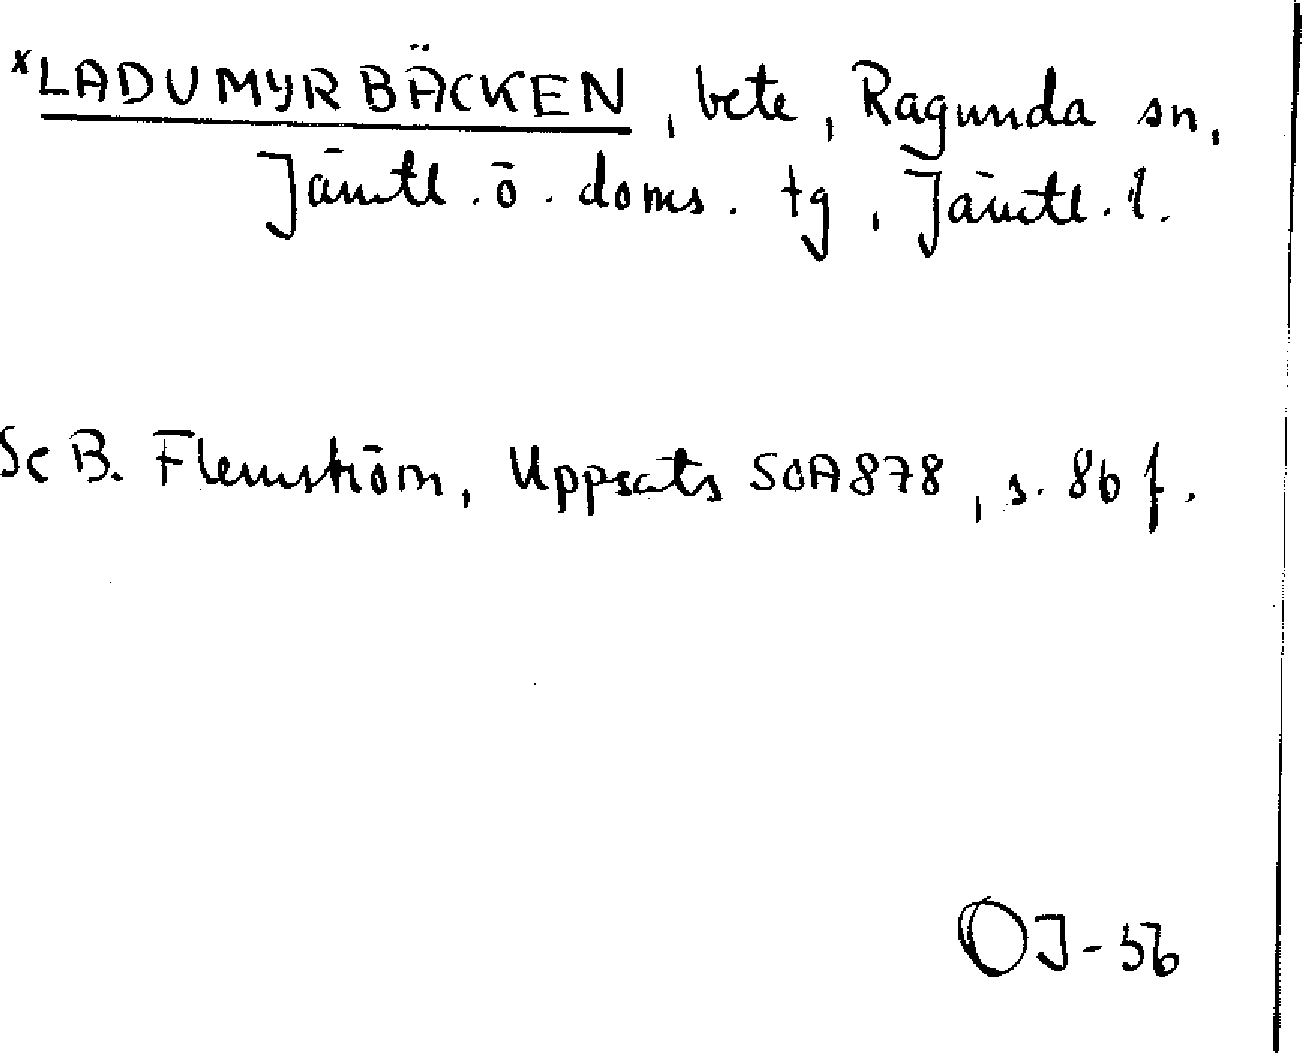 *LADUMYRBÄCKEN, bete, Ragunda sn,
Jämtl. ö. doms. tg, Jämtl. l.
Se B. Flemström, Uppsats SOA878, s. 86 f.
OJ-56